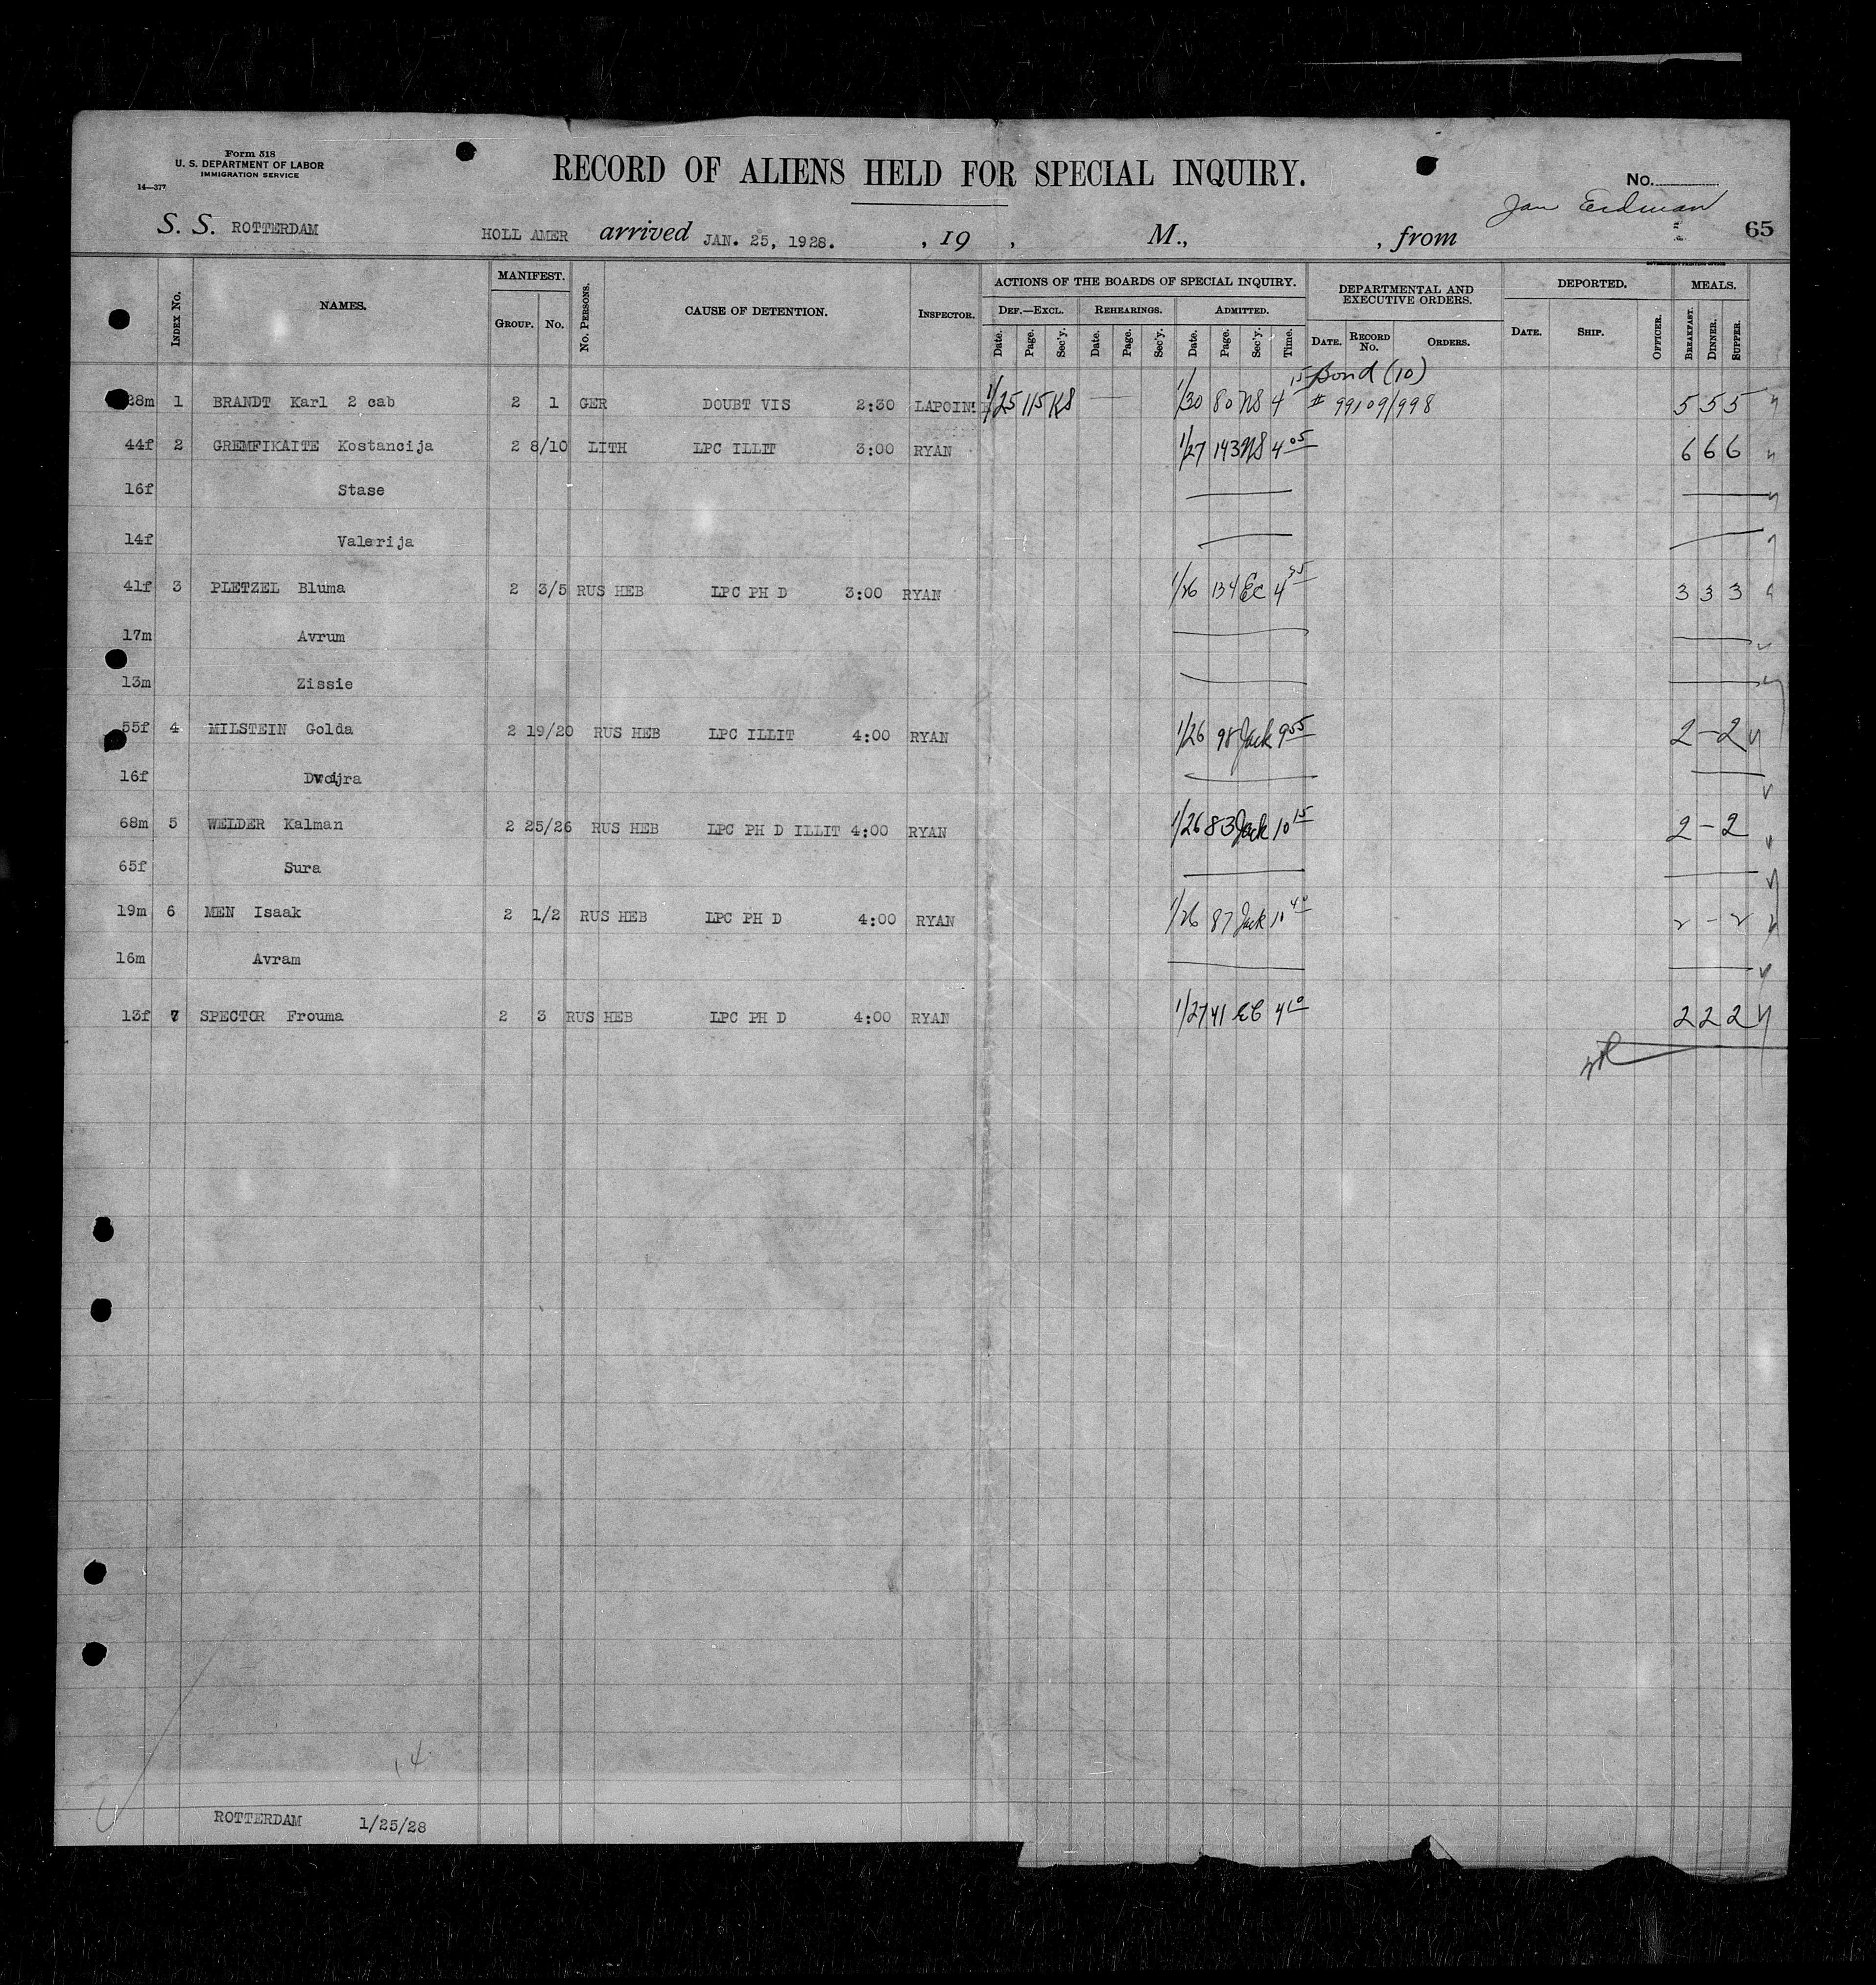 Form 518
U. S. DEPARTMENT OF LABOR
IMMIGRATION SERVICE
14—377
RECORD OF ALIENS HELD FOR SPECIAL INQUIRY.
No.
Jan Erdman
S. S. ROTTERDAM HOLL AMER arrived JAN. 25, 1928. , 19 , M., , from 65
INDEX NO. NAMES. MANIFEST. GROUP. NO. NO. PERSONS. CAUSE OF DETENTION. INSPECTOR. ACTIONS OF THE BOARDS OF SPECIAL INQUIRY. DEF.—EXCL. Date. Page. Sec'y. REHEARINGS. Date. Page. Sec'y. ADMITTED. Date. Page. Sec'y. Time. DEPARTMENTAL AND EXECUTIVE ORDERS. DATE. RECORD NO. ORDERS. DEPORTED. DATE. SHIP. OFFICER. MEALS. BREAKFAST. DINNER. SUPPER.
Bond (10)
28m 1 BRANDT Karl 2 cab 2 1 GER DOUBT VIS 2:30 LAPOIN 1/25 115 KS — 1/30 80 NS 4 15 # 99109/998 5 5 5
44f 2 GREMFIKAITE Kostancija 2 8/10 LITH LPC ILLIT 3:00 RYAN 1/27 143 NS 4 05 6 6 6
16f Stase
14f Valerija
41f 3 PLETZEL Bluma 2 3/5 RUS HEB LPC PH D 3:00 RYAN 1/26 134 EC 4 3 3 3
17m Avrum
13m Zissie
55f 4 MILSTEIN Golda 2 19/20 RUS HEB LPC ILLIT 4:00 RYAN 1/26 98 Jack 9 55 2 – 2
16f Dwojra
68m 5 WELDER Kalman 2 25/26 RUS HEB LPC PH D ILLIT 4:00 RYAN 1/26 83 Jack 10 15 2 – 2
65f Sura
19m 6 MEN Isaak 2 1/2 RUS HEB LPC PH D 4:00 RYAN 1/26 87 Jack 10 40 2 – 2
16m Avram
13f 7 SPECTOR Frouma 2 3 RUS HEB LPC PH D 4:00 RYAN 1/27 41 EC 4 10 2 2 2
14
ROTTERDAM 1/25/28